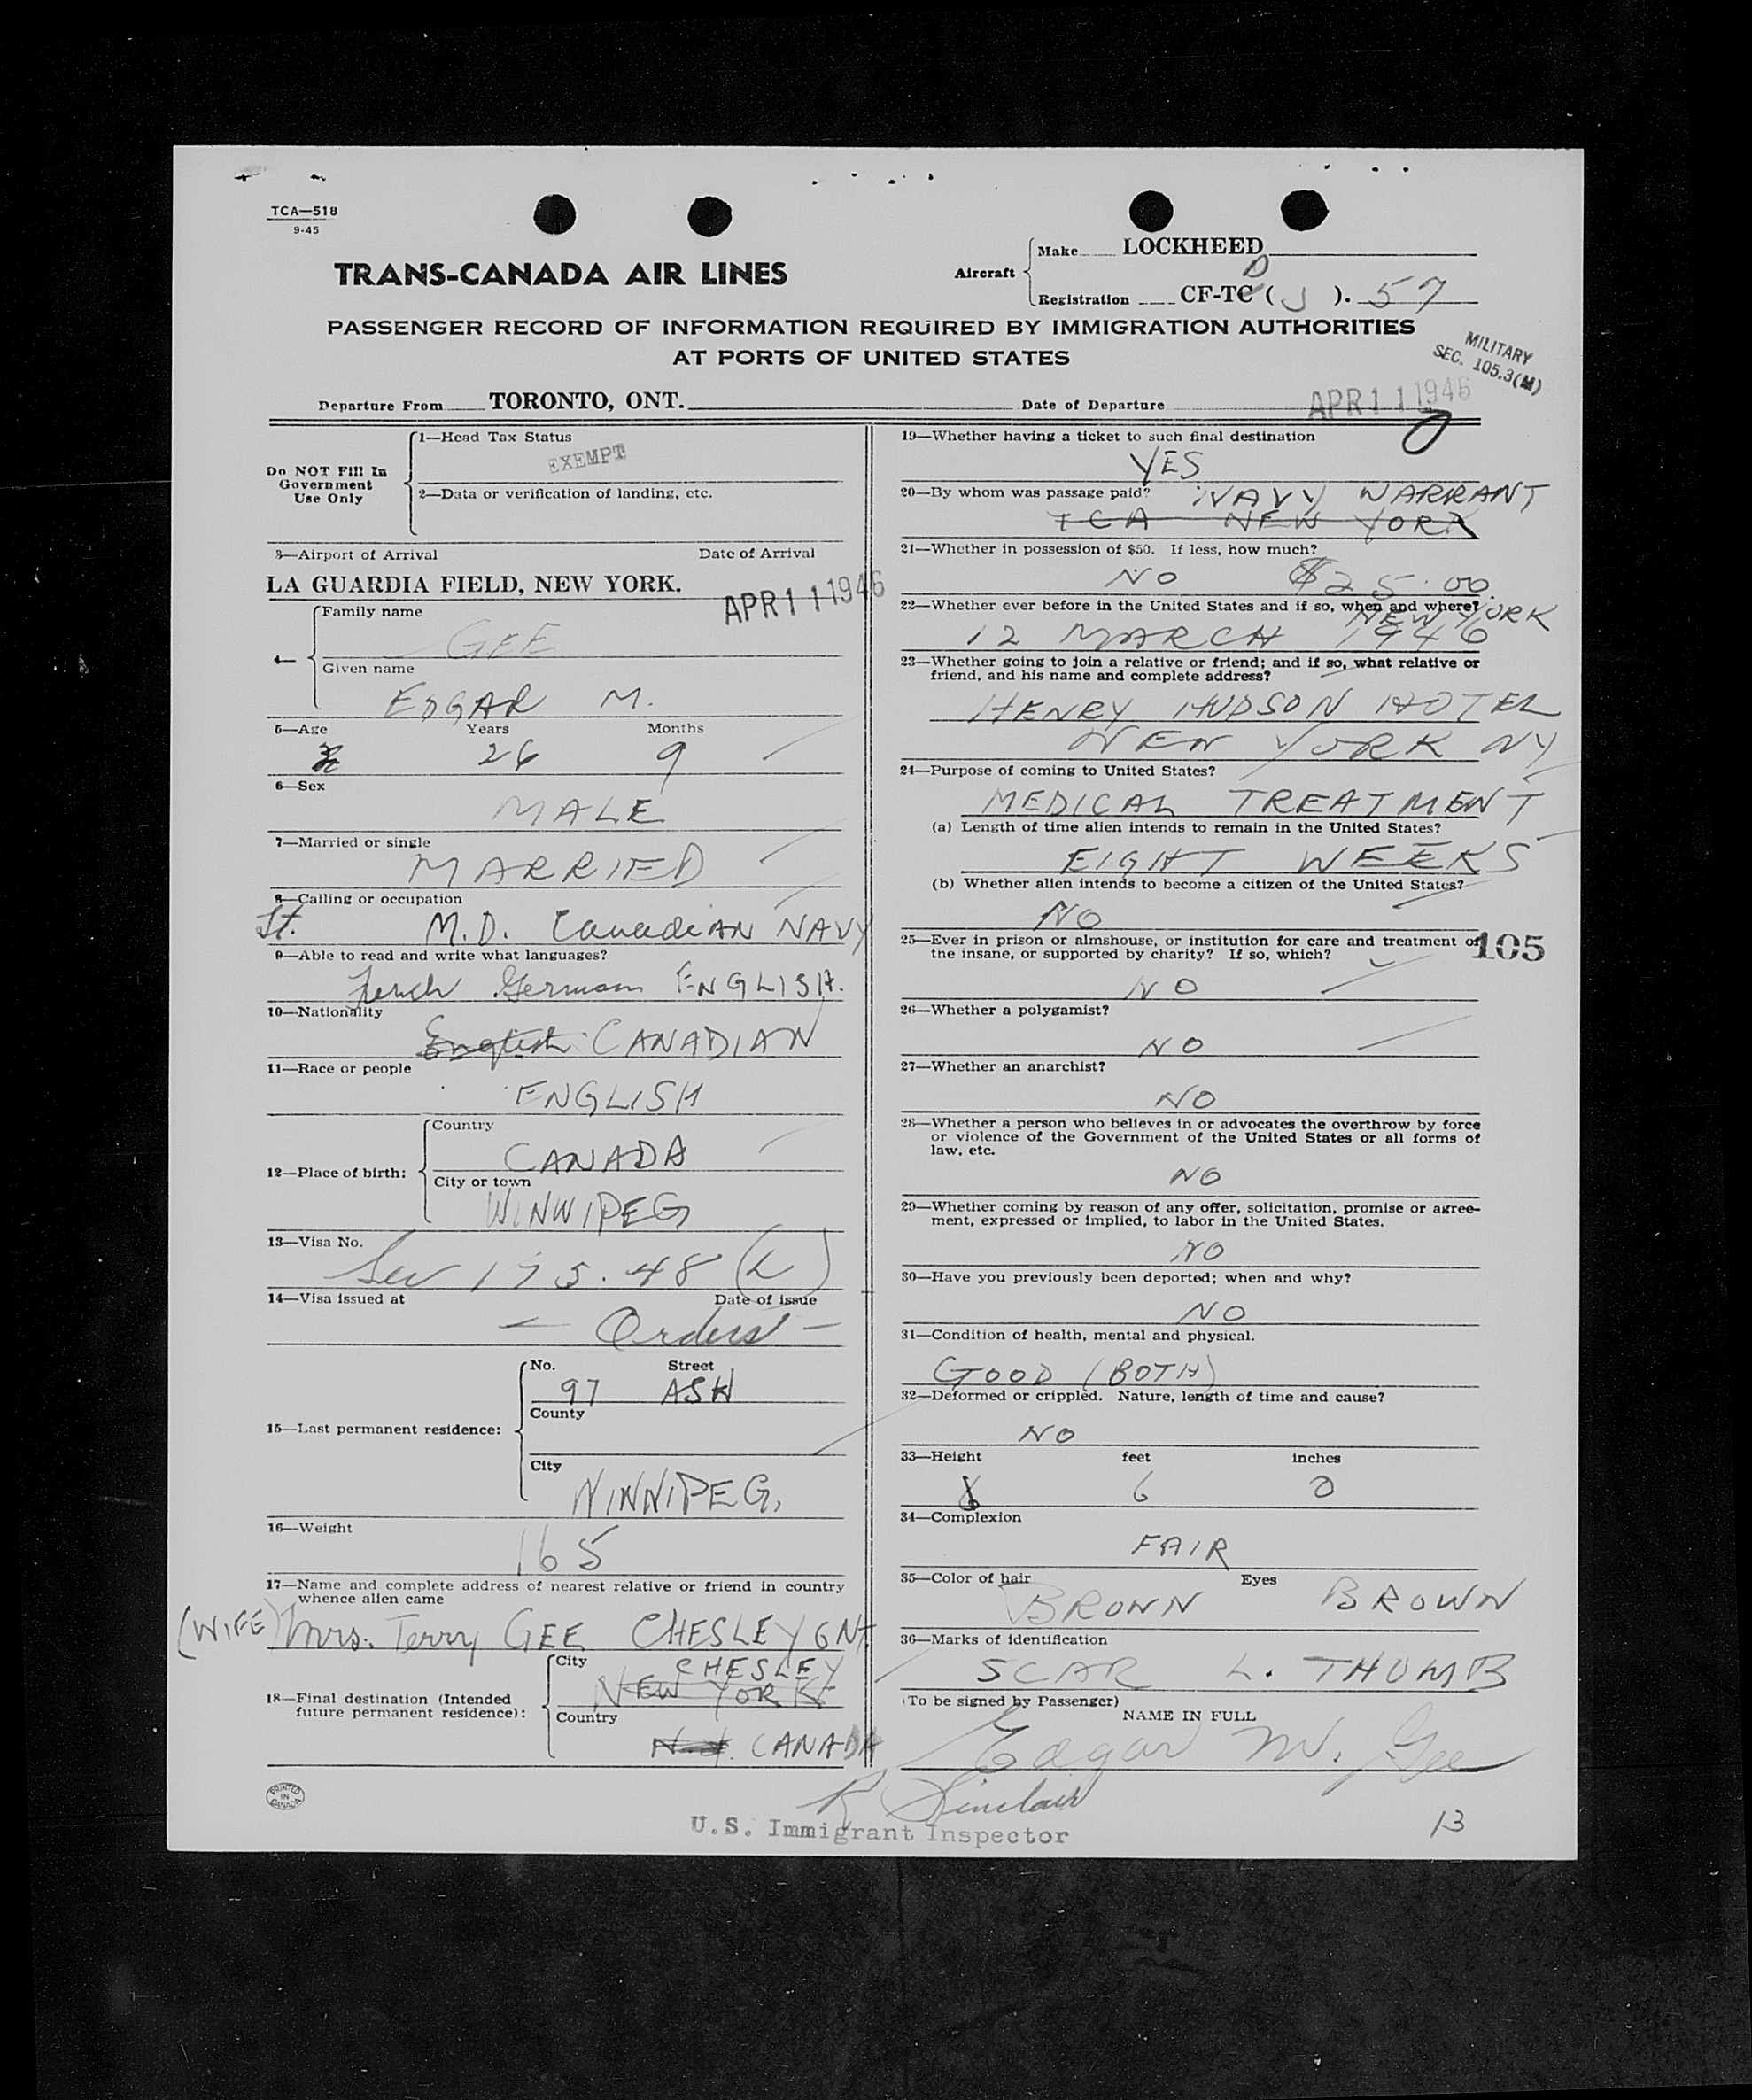 TCA—518
9-45
TRANS-CANADA AIR LINES
Aircraft
Make LOCKHEED
Registration CF-TC ( J ). 57
D
PASSENGER RECORD OF INFORMATION REQUIRED BY IMMIGRATION AUTHORITIES
AT PORTS OF UNITED STATES
MILITARY
SEC. 105.3(M)
Departure From TORONTO, ONT.
Date of Departure APR 11 1946
Do NOT Fill In
Government
Use Only
1—Head Tax Status
EXEMPT
2—Data or verification of landing, etc.
3—Airport of Arrival Date of Arrival
LA GUARDIA FIELD, NEW YORK.
APR 11 1946
4—
Family name
GEE
Given name
EDGAR M.
5—Age Years Months
26 9
6—Sex
MALE
7—Married or single
MARRIED
8—Calling or occupation
Lt. M.D. Canadian NAVY
9—Able to read and write what languages?
French German ENGLISH.
10—Nationality
English CANADIAN
11—Race or people
ENGLISH
12—Place of birth:
Country
CANADA
City or town
WINNIPEG
13—Visa No.
Sec 175.48 (L)
14—Visa issued at Date of issue
— Orders —
15—Last permanent residence:
No. Street
97 ASH
County
City
WINNIPEG,
16—Weight
165
17—Name and complete address of nearest relative or friend in country
whence alien came
(WIFE) Mrs. Terry GEE CHESLEY ONT.
18—Final destination (Intended
future permanent residence):
City CHESLEY
NEW YORK
Country
N.Y. CANADA
PRINTED
IN
CANADA
19—Whether having a ticket to such final destination
YES
20—By whom was passage paid? NAVY WARRANT
TCA NEW YORK
21—Whether in possession of $50. If less, how much?
NO $25.00
22—Whether ever before in the United States and if so, when and where?
NEW YORK
12 MARCH 1946
23—Whether going to join a relative or friend; and if so, what relative or
friend, and his name and complete address?
HENRY HUDSON HOTEL
NEW YORK NY
24—Purpose of coming to United States?
MEDICAL TREATMENT
(a) Length of time alien intends to remain in the United States?
EIGHT WEEKS
(b) Whether alien intends to become a citizen of the United States?
NO
25—Ever in prison or almshouse, or institution for care and treatment of
the insane, or supported by charity? If so, which?
105
NO
26—Whether a polygamist?
NO
27—Whether an anarchist?
NO
28—Whether a person who believes in or advocates the overthrow by force
or violence of the Government of the United States or all forms of
law, etc.
NO
29—Whether coming by reason of any offer, solicitation, promise or agree-
ment, expressed or implied, to labor in the United States.
NO
30—Have you previously been deported; when and why?
NO
31—Condition of health, mental and physical.
GOOD (BOTH)
32—Deformed or crippled. Nature, length of time and cause?
NO
33—Height feet inches
6 0
34—Complexion
FAIR
35—Color of hair Eyes
BROWN BROWN
36—Marks of identification
SCAR L. THUMB
(To be signed by Passenger)
NAME IN FULL
Edgar M. Gee
R Sinclair
U.S. Immigrant Inspector
13